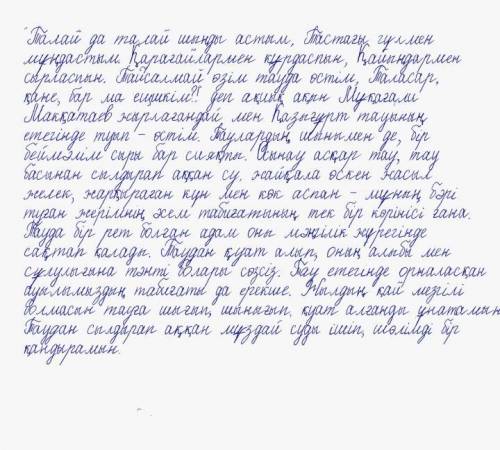 "Талай да талай шыңды астым, Тастағы гүлмен
мұңдастым. Қарағайлармен құрдаспын, Қайыңдармен
сырласпын. Тайсалмай өзім тауда өстім, Таласар,
кане, бар ма ешкім?!" деп ақиық ақын Мұқағали
Мақатаев жырлағандай мен Қазығұрт тауының
етегінде туып - өстім. Таулардың шыңымен де, бір
беймәлім сыры бар сияқты. Мынау асқар тау, тау
басынан сылдырап аққан су, жайқала өскен жасыл
желек, жарқыраған күн мен көк аспан - мұның бәрі
туған жерімнің әсем табиғатының тек бір көрінісі ғана.
Тауда бір рет болған адам оны мәңгілік жүрегінде
сақтап қалады. Таудан қуат алып, оның алыбы мен
сұлулығына тәнті болары сөзсіз. Тау етегінде орналасқан
ауылымыздың табиғаты да ерекше. Жылдың қай мезгілі
болмасын тауға шығып, шынығып, қуат алғанды ұнатамын.
Таудан сылдырап аққан мұздай суды ішіп, шөлімді бір
қандырамын.